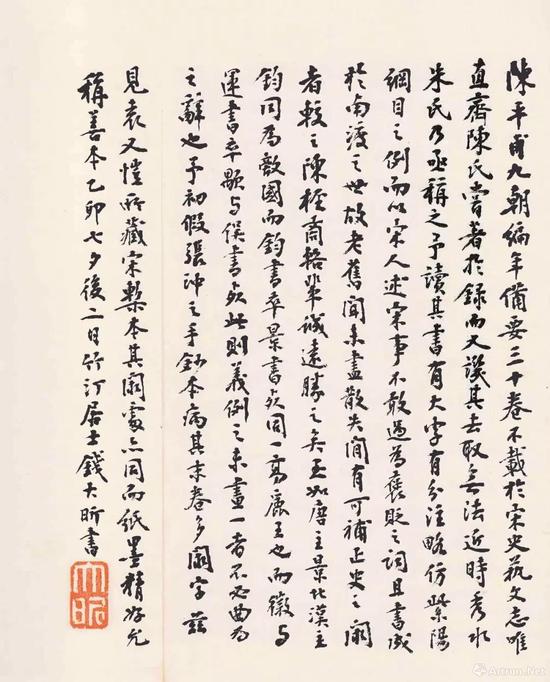 陳平甫九朝編年備要三十卷不載於宋史藝文志唯
直齋陳氏嘗著於録而又譏其去取無法近時秀水
朱氏乃亟稱之予讀其書有大字有分注略仿紫陽
綱目之例而以宋人述宋事不敢過為褒貶之詞且書成
於南渡之世故老舊聞未盡散失間有可補正史之闕
者較之陳桱商輅輩誠遠勝之矣至如唐主景北漢主
鈞同為敵國而鈞書卒景書殂同一高麗王也而徽與
運書卒顒与俁書殂此則義例之未畫一者不必曲為
之辭也予初假張沖之手鈔本病其末卷多闕字兹
見袁又愷所藏宋槧本其闕處亦同而紙墨精好允
稱善本乙卯七夕後二日竹汀居士錢大昕書
大昕
Artron.Net